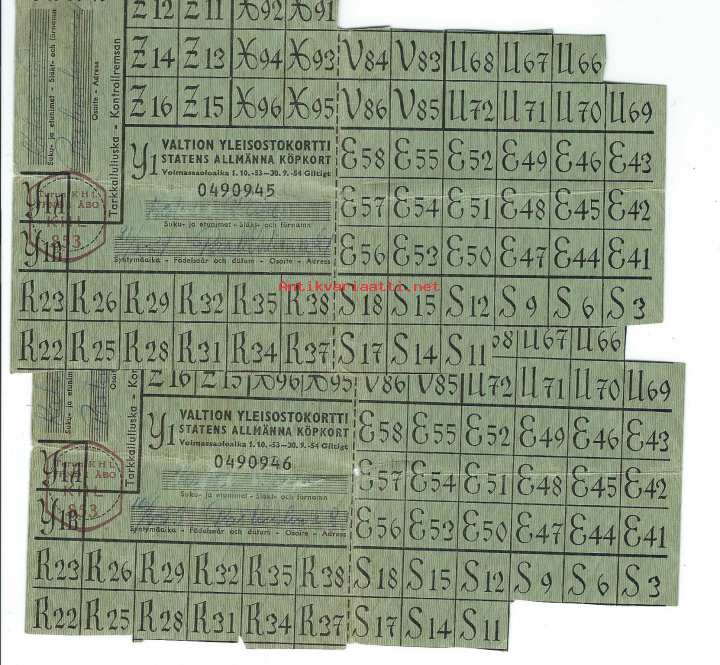 Z12 Z11 X92 X91
Z14 Z13 X94 X93 V84 V83 U68 U67 U66
Z16 Z15 X96 X95 V86 V85 U72 U71 U70 U69
Suku- ja etunimet - Släkt- och förnamn
Osoite - Adress
Tarkkailuliuska - Kontrollremsan
Y1 VALTION YLEISOSTOKORTTI
STATENS ALLMÄNNA KÖPKORT
Voimassaoloaika 1.10.-53—30.9.-54 Giltigt
0490945
Suku- ja etunimet - Släkt- och förnamn
Syntymäaika - Födelseår och datum - Osoite - Adress
E58 E55 E52 E49 E46 E43
E57 E54 E51 E48 E45 E42
E56 E53 E50 E47 E44 E41
Y1A
Y1B
KHL
ÅBO
853
Antikvariaatti.net
R23 R26 R29 R32 R35 R38 S18 S15 S12 S9 S6 S3
R22 R25 R28 R31 R34 R37 S17 S14 S11
68 U67 U66
Z16 Z15 X96 X95 V86 V85 U72 U71 U70 U69
Suku- ja etunimet - Släkt- och
Osoite - Adress
Tarkkailuliuska - Ko
Y1 VALTION YLEISOSTOKORTTI
STATENS ALLMÄNNA KÖPKORT
Voimassaoloaika 1.10.-53—30.9.-54 Giltigt
0490946
Suku- ja etunimet - Släkt- och förnamn
Syntymäaika - Födelseår och datum - Osoite - Adress
E58 E55 E52 E49 E46 E43
E57 E54 E51 E48 E45 E42
E56 E53 E50 E47 E44 E41
Y1A
Y1B
KHL
ÅBO
853
R23 R26 R29 R32 R35 R38 S18 S15 S12 S9 S6 S3
R22 R25 R28 R31 R34 R37 S17 S14 S11